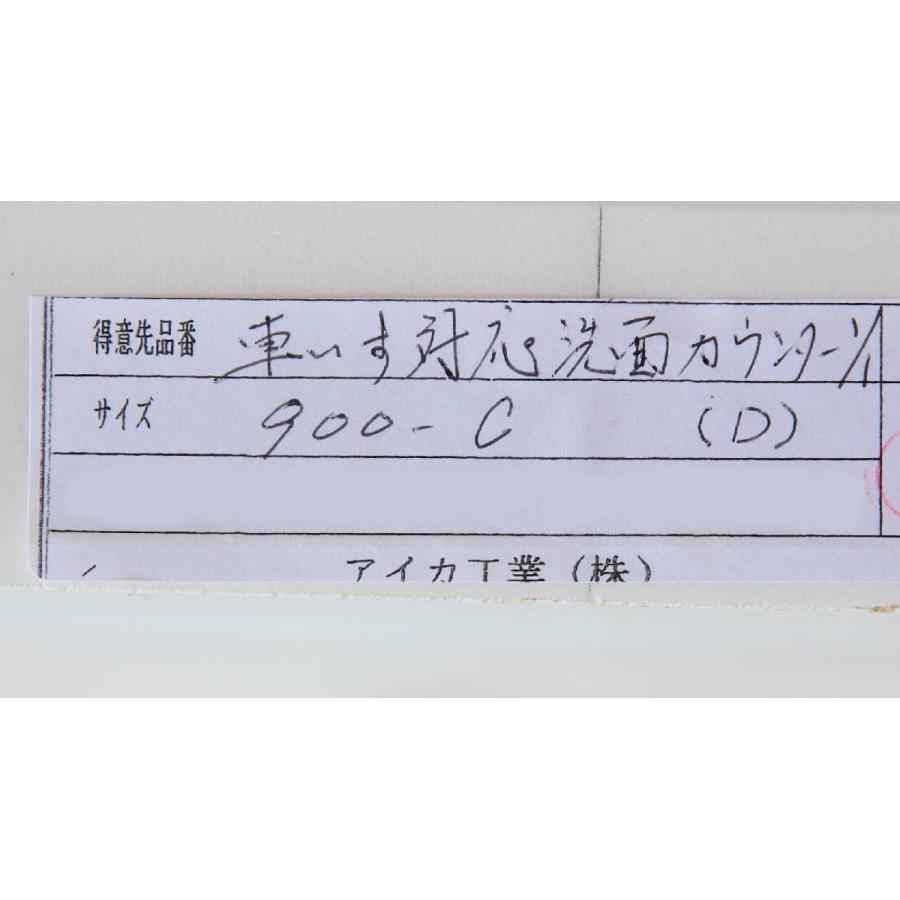 得意先品番 車いす対応洗面カウンター
サイズ 900-C (D)
アイカ工業(株)